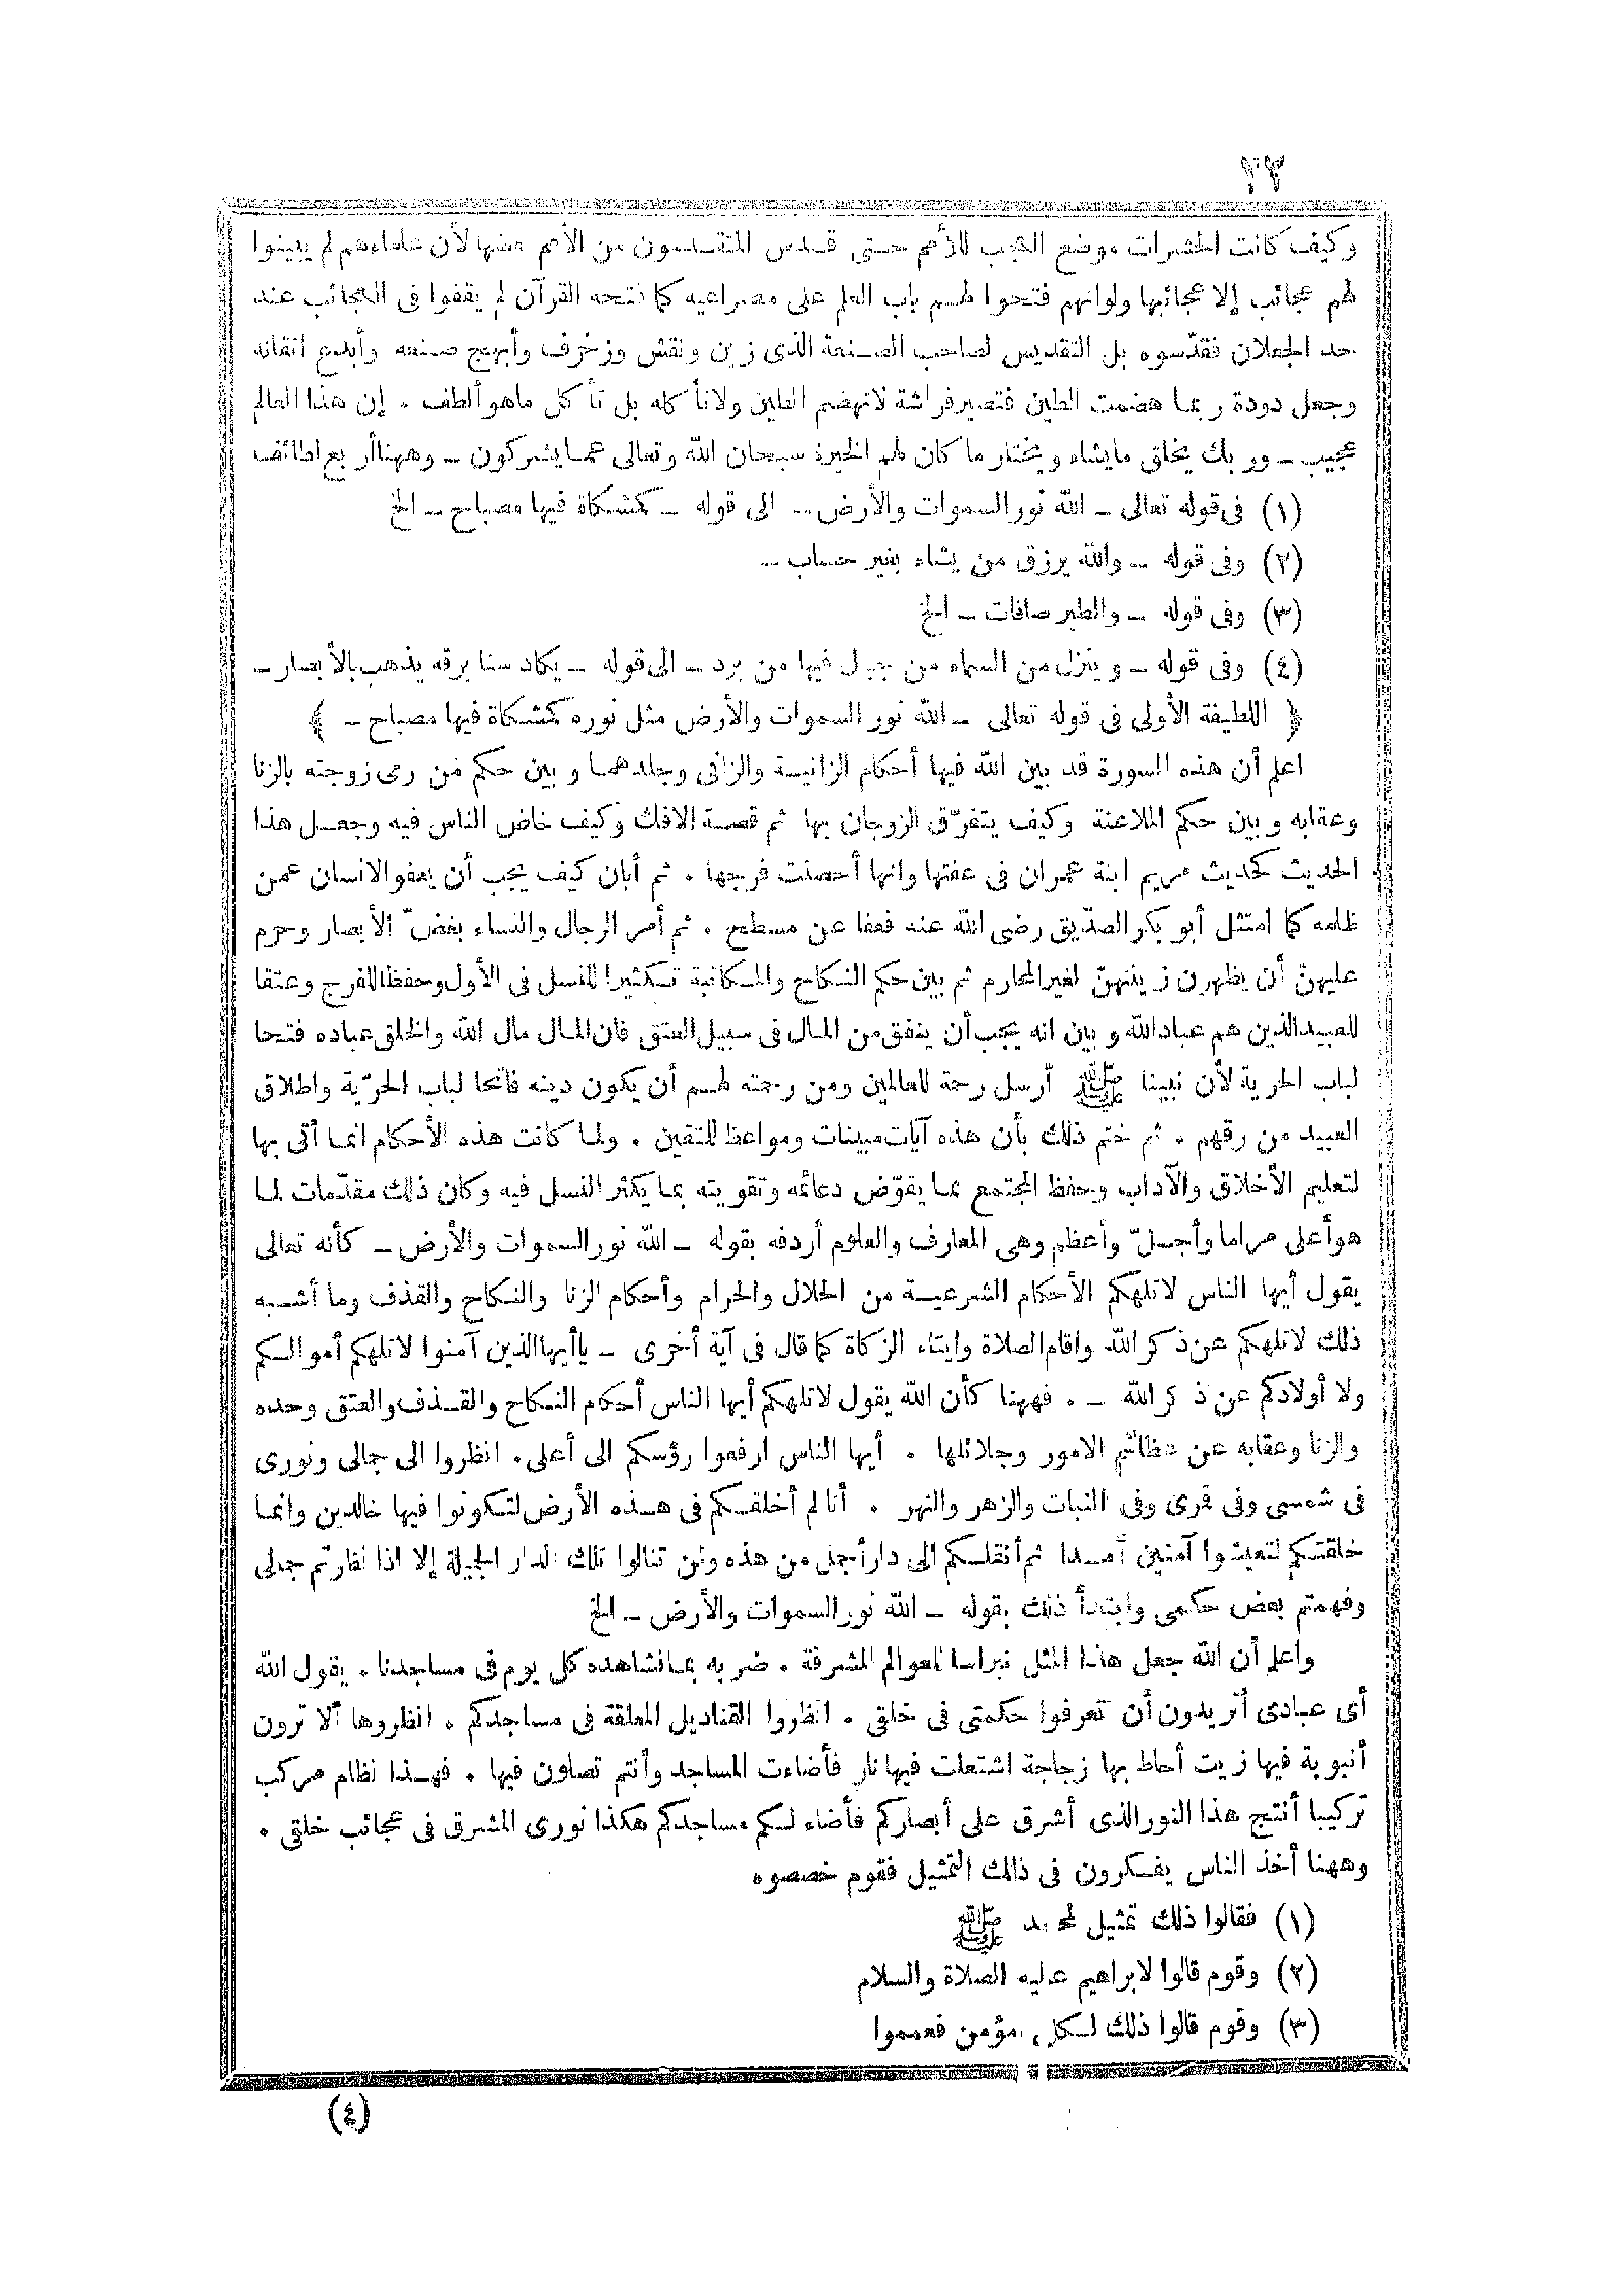 ٢٣
وكيف كانت الحشرات موضع العجب للأمم حتى قدس المتقدمون من الأمم بعضها لأن علماءهم لم يبينوا
لهم عجائب إلا عجائبها ولوأنهم فتحوا لهم باب العلم على مصراعيه كما فتحه القرآن لم يقفوا فى العجائب عند
حد الجعلان فقدّسوه بل التقديس لصاحب الصنعة الذى زين ونقش وزخرف وأبهج صنعه وأبدع اتقانه
وجعل دودة ربما هضمت الطين فتصير فراشة لاتهضم الطين ولاتأكله بل تأكل ماهو ألطف . إن هذا العالم
عجيب ـ وربك يخلق مايشاء ويختار ما كان لهم الخيرة سبحان الله وتعالى عما يشركون ـ وههنا أربع لطائف
(١) فى قوله تعالى ـ الله نور السموات والأرض ـ الى قوله ـ كمشكاة فيها مصباح ـ الخ
(٢) وفى قوله ـ والله يرزق من يشاء بغير حساب ـ
(٣) وفى قوله ـ والطير صافات ـ الخ
(٤) وفى قوله ـ وينزل من السماء من جبال فيها من برد ـ الى قوله ـ يكاد سنا برقه يذهب بالأبصار ـ
﴿ اللطيفة الأولى فى قوله تعالى ـ الله نور السموات والأرض مثل نوره كمشكاة فيها مصباح ـ ﴾
اعلم أن هذه السورة قد بين الله فيها أحكام الزانية والزانى وجلدهما وبين حكم من رمى زوجته بالزنا
وعقابه وبين حكم الملاعنة وكيف يتفرّق الزوجان بها ثم قصة الافك وكيف خاض الناس فيه وجعل هذا
الحديث كحديث مريم ابنة عمران فى عفتها وانها أحصنت فرجها . ثم أبان كيف يجب أن يعفو الانسان عمن
ظلمه كما امتثل أبو بكر الصدّيق رضى الله عنه فعفا عن مسطح . ثم أمر الرجال والنساء بغضّ الأبصار وحرم
عليهنّ أن يظهرن زينتهنّ لغير المحارم ثم بين حكم النكاح والمكاتبة تكثيرا للنسل فى الأول وحفظا للفرج وعتقا
للعبيد الذين هم عباد الله وبين انه يجب أن ينفق من المال فى سبيل العتق فان المال مال الله والخلق عباده فتحا
لباب الحرية لأن نبينا ﷺ أرسل رحمة للعالمين ومن رحمته لهم أن يكون دينه فاتحا لباب الحرّية واطلاق
العبيد من رقهم . ثم ختم ذلك بأن هذه آيات مبينات ومواعظ للمتقين . ولما كانت هذه الأحكام انما أتى بها
لتعليم الأخلاق والآداب وحفظ المجتمع مما يقوّض دعائمه وتقويته بما يكثر النسل فيه وكان ذلك مقدّمات لما
هو أعلى مراما وأجلّ وأعظم وهى المعارف والعلوم أردفه بقوله ـ الله نور السموات والأرض ـ كأنه تعالى
يقول أيها الناس لاتلهكم الأحكام الشرعية من الحلال والحرام وأحكام الزنا والنكاح والقذف وما أشبه
ذلك لاتلهكم عن ذكر الله واقام الصلاة وايتاء الزكاة كما قال فى آية أخرى ـ ياأيها الذين آمنوا لاتلهكم أموالكم
ولا أولادكم عن ذكر الله ـ . فههنا كأن الله يقول لاتلهكم أيها الناس أحكام النكاح والقذف والعتق وحده
والزنا وعقابه عن عظائم الامور وجلائلها . أيها الناس ارفعوا رؤسكم الى أعلى . انظروا الى جمالى ونورى
فى شمسى وفى قمرى وفى النبات والزهر والنهر . أنا لم أخلقكم فى هذه الأرض لتكونوا فيها خالدين وانما
خلقتكم لتعيشوا آمنين أمدا ثم أنقلكم الى دار أجمل من هذه ولن تنالوا تلك الدار الجميلة إلا اذا نظرتم جمالى
وفهمتم بعض حكمى وابتدأ ذلك بقوله ـ الله نور السموات والأرض ـ الخ
واعلم أن الله جعل هذا المثل نبراسا للعوالم المشرقة . ضربه بما نشاهده كل يوم فى مساجدنا . يقول الله
أى عبادى أتريدون أن تعرفوا حكمتى فى خلقى . انظروا القناديل المعلقة فى مساجدكم . انظروها ألا ترون
أنبوبة فيها زيت أحاط بها زجاجة اشتعلت فيها نار فأضاءت المساجد وأنتم تصلون فيها . فهذا نظام مركب
تركيبا أنتج هذا النور الذى أشرق على أبصاركم فأضاء لكم مساجدكم هكذا نورى المشرق فى عجائب خلقى .
وههنا أخذ الناس يفكرون فى ذلك التمثيل فقوم خصصوه
(١) فقالوا ذلك تمثيل لمحمد ﷺ
(٢) وقوم قالوا لابراهيم عليه الصلاة والسلام
(٣) وقوم قالوا ذلك لكل مؤمن فعمموا
(٤)